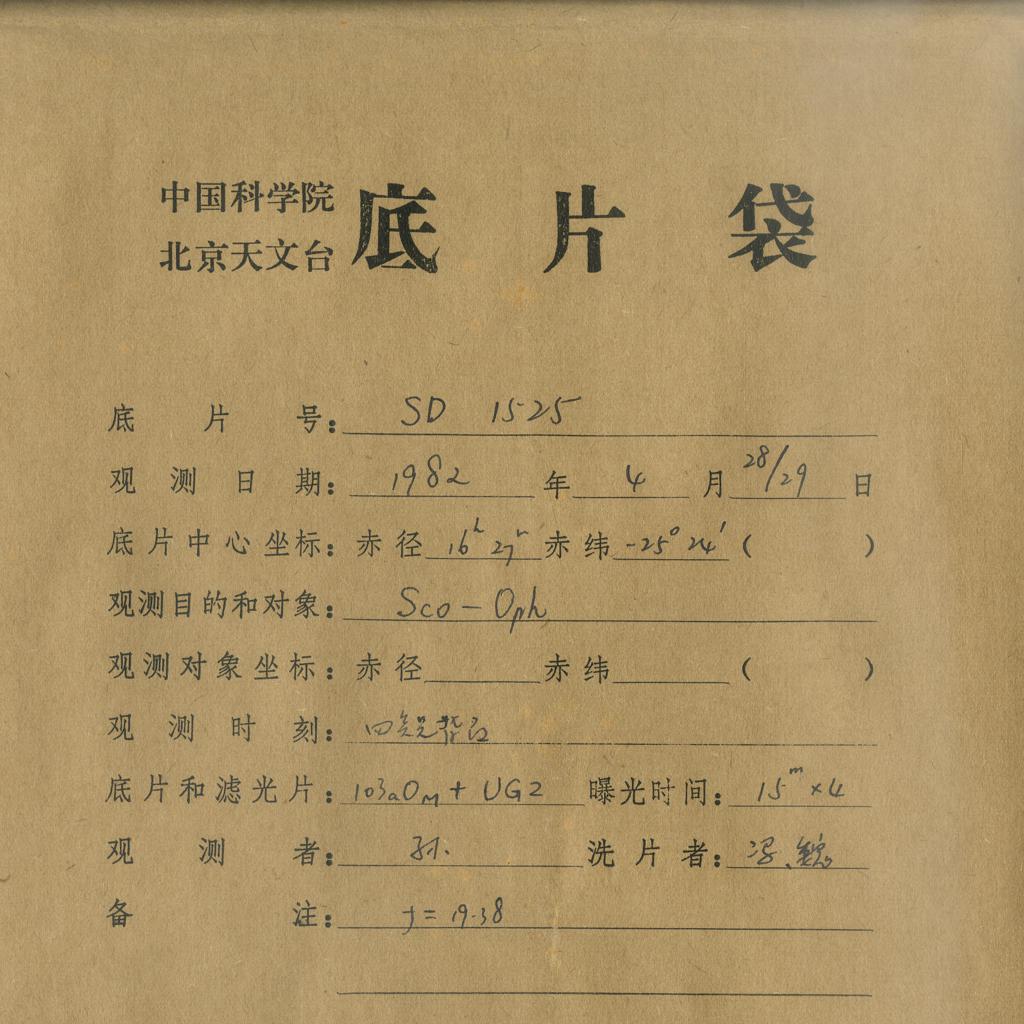 中国科学院
北京天文台
底片袋
底片号: SD 1525
观测日期: 1982 年 4 月 28/29 日
底片中心坐标: 赤径 16h 27m 赤纬 -25° 24′ ( )
观测目的和对象: Sco - Oph
观测对象坐标: 赤径 赤纬 ( )
观测时刻:
底片和滤光片: 103aOM + UG2 曝光时间: 15m ×4
观测者: 孙 洗片者: 冯、魏
备注: f = 19.38